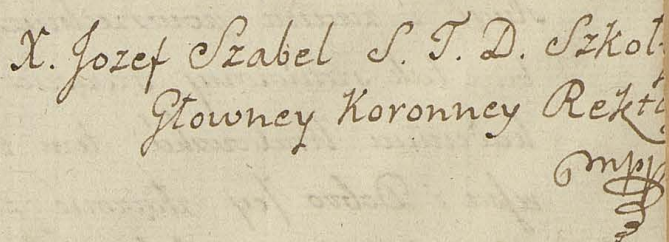 X. Jozef Szabel S. T. D. Szkoł
Głowney Koronney Rekto
mpp